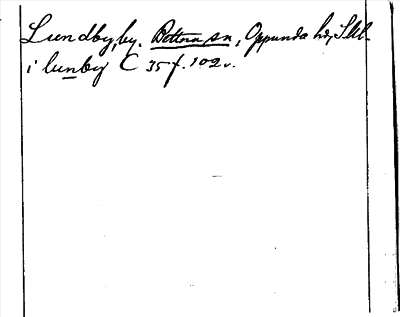 Lundby, by. Bettna sn, Oppunda hd, Sdl.
i lunby C 35 f. 102 v.